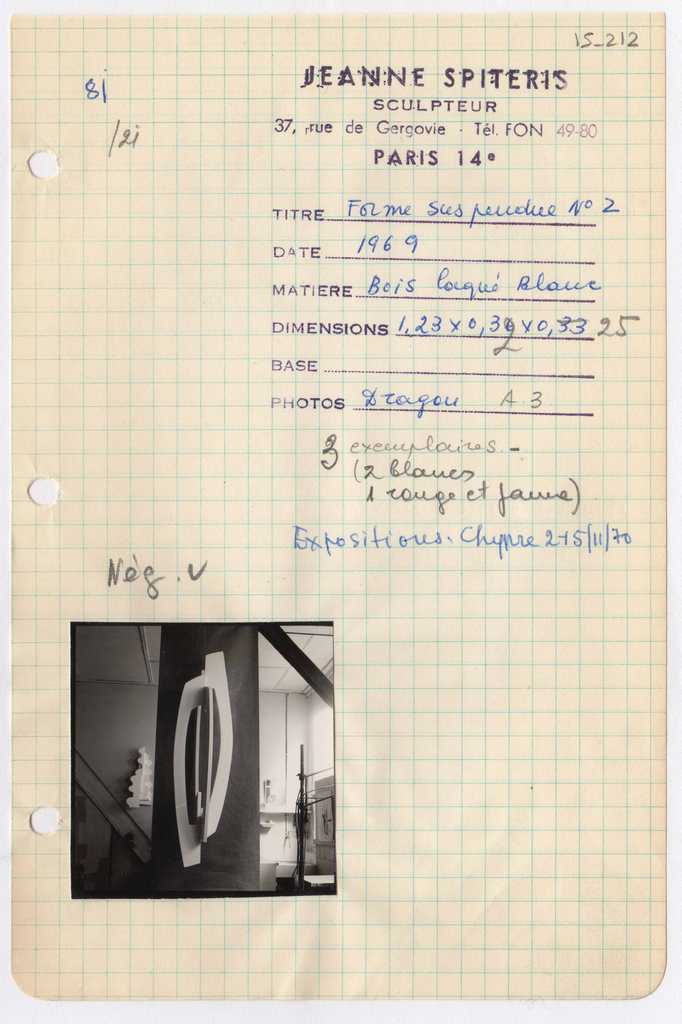 IS_212
8j
/2i
JEANNE SPITERIS
SCULPTEUR
37, rue de Gergovie - Tél. FON 49-80
PARIS 14e
TITRE Forme Suspendue No 2
DATE 1969
MATIERE Bois laqué Blanc
DIMENSIONS 1,23 x 0,32 x 0,33 25
BASE
PHOTOS Dragou A.3
3 exemplaires. -
(2 blancs
1 rouge et jaune)
Expositions. Chypre 2-15/11/70
Nég. V